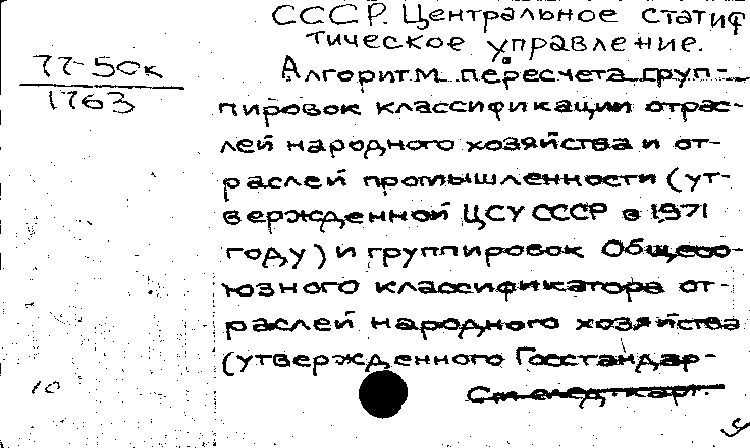 СССР. Центральное статис-
тическое управление.
77-50к
1763
Алгоритм пересчета груп-
пировок классификации отрас-
лей народного хозяйства и от-
раслей промышленности (ут-
вержденной ЦСУ СССР в 1971
году) и группировок Общесо-
юзного классификатора от-
раслей народного хозяйства
(утвержденного Госстандар-
См. след. карт.
10